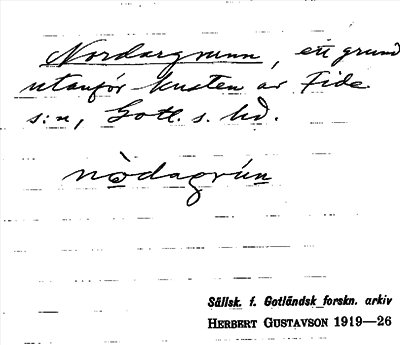 Nordargrunn, ett grund
utanför kusten av Fide
s:n, Gotl. s. hd.
nòdagrún
Sällsk. f. Gotländsk forskn. arkiv
HERBERT GUSTAVSON 1919—26